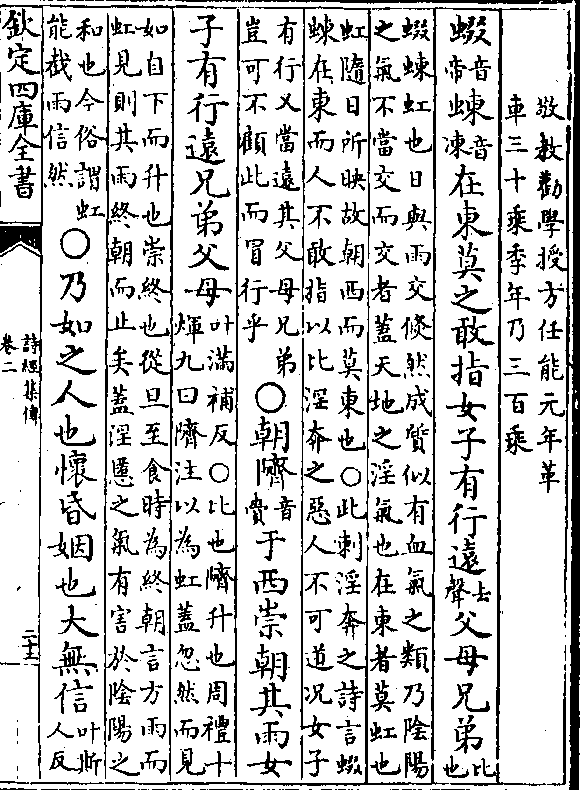 敬教勸學授方任能元年革
車三十乗季年乃三百乗
蝃音帝蝀音凍在東莫之敢指女子有行逺去聲父母兄弟比也
蝃蝀虹也日與雨交倐然成質似有血氣之類乃隂陽
之氣不當交而交者蓋天地之淫氣也在東者莫虹也
虹隨日所映故朝西而莫東也○此刺淫奔之詩言蝃
蝀在東而人不敢指以比淫奔之惡人不可道况女子
有行又當逺其父母兄弟
豈可不顧此而冒行乎
○朝隮音賷于西崇朝其雨女
子有行逺兄弟父母叶滿補反○比也隮升也周禮十
煇九曰隮注以為虹蓋忽然而見
如自下而升也崇終也從旦至食時為終朝言方雨而
虹見則其雨終朝而止矣蓋淫慝之氣有害於隂陽之
和也今俗謂虹
能截雨信然
○乃如之人也懷昏姻也大無信叶斯人反
欽定四庫全書
詩經集傳
卷二
二十三